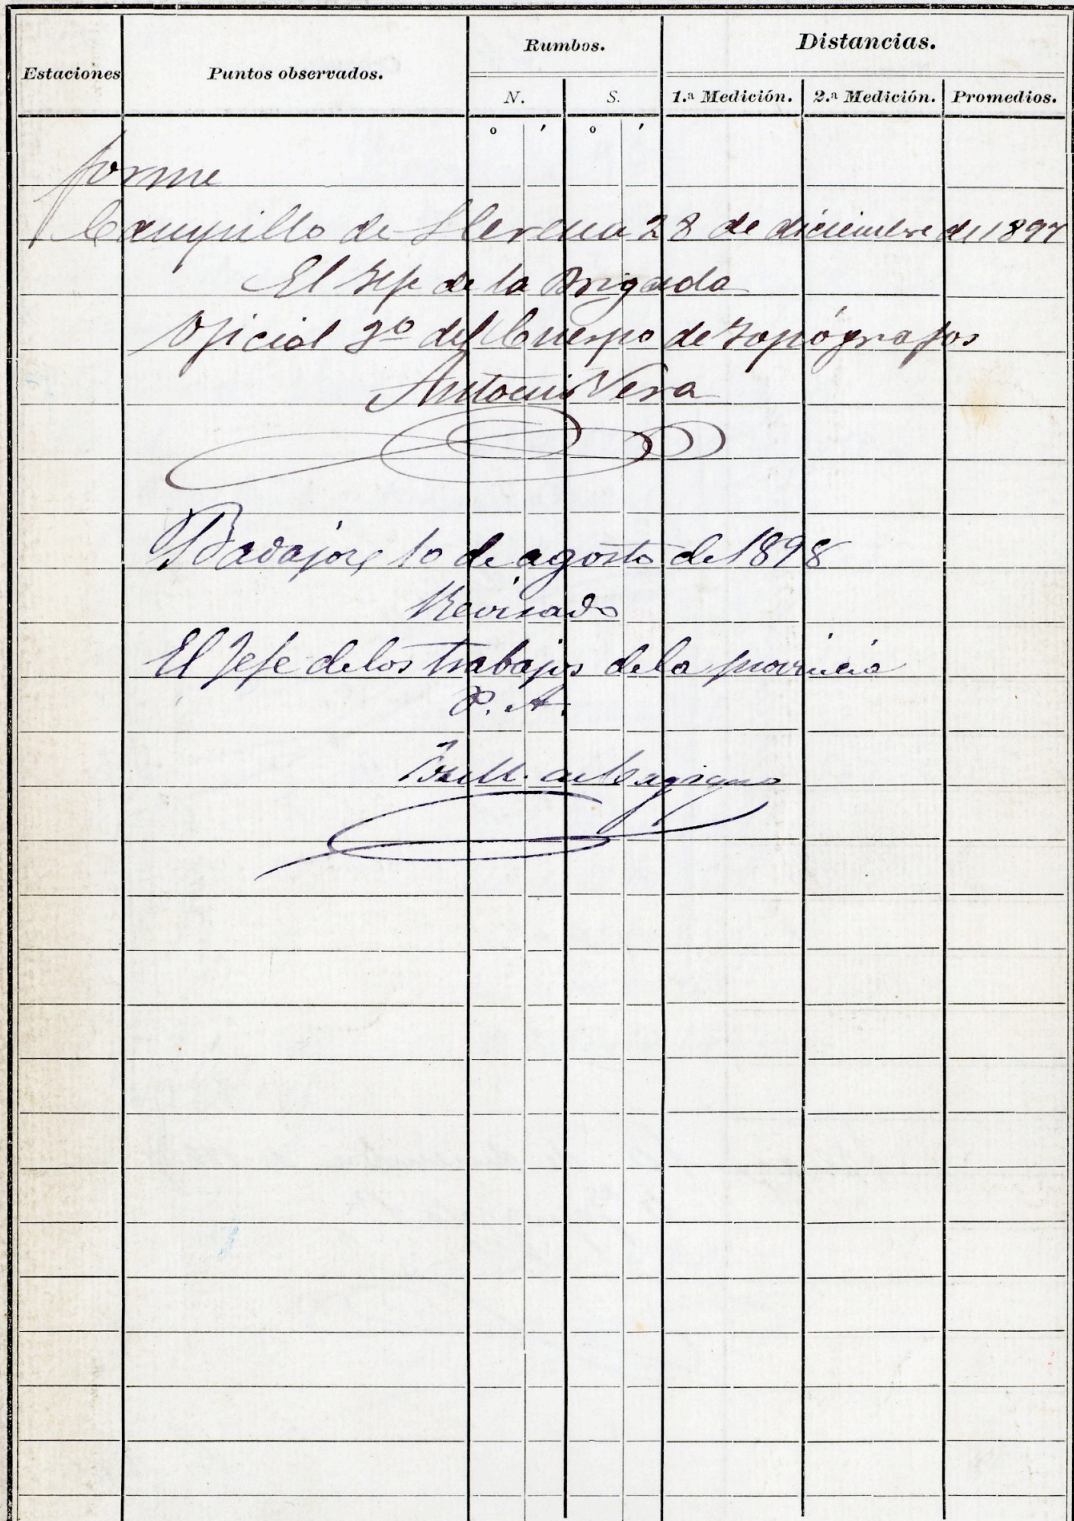 Estaciones
Puntos observados.
Rumbos.
Distancias.
N.
S.
1.ª Medición.
2.ª Medición.
Promedios.
° ′ ° ′
forme
Campillo de Llerena 28 de diciembre de 1897
El Jefe de la Brigada
Oficial 3º del Cuerpo de Topógrafos
Antonio Vera
Badajoz 10 de agosto de 1898
Revisado
El Jefe de los trabajos de la provincia
P. A.